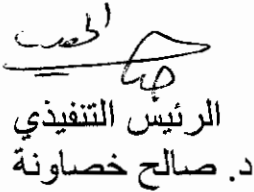 الرئيس التنفيذي
د. صالح خصاونة